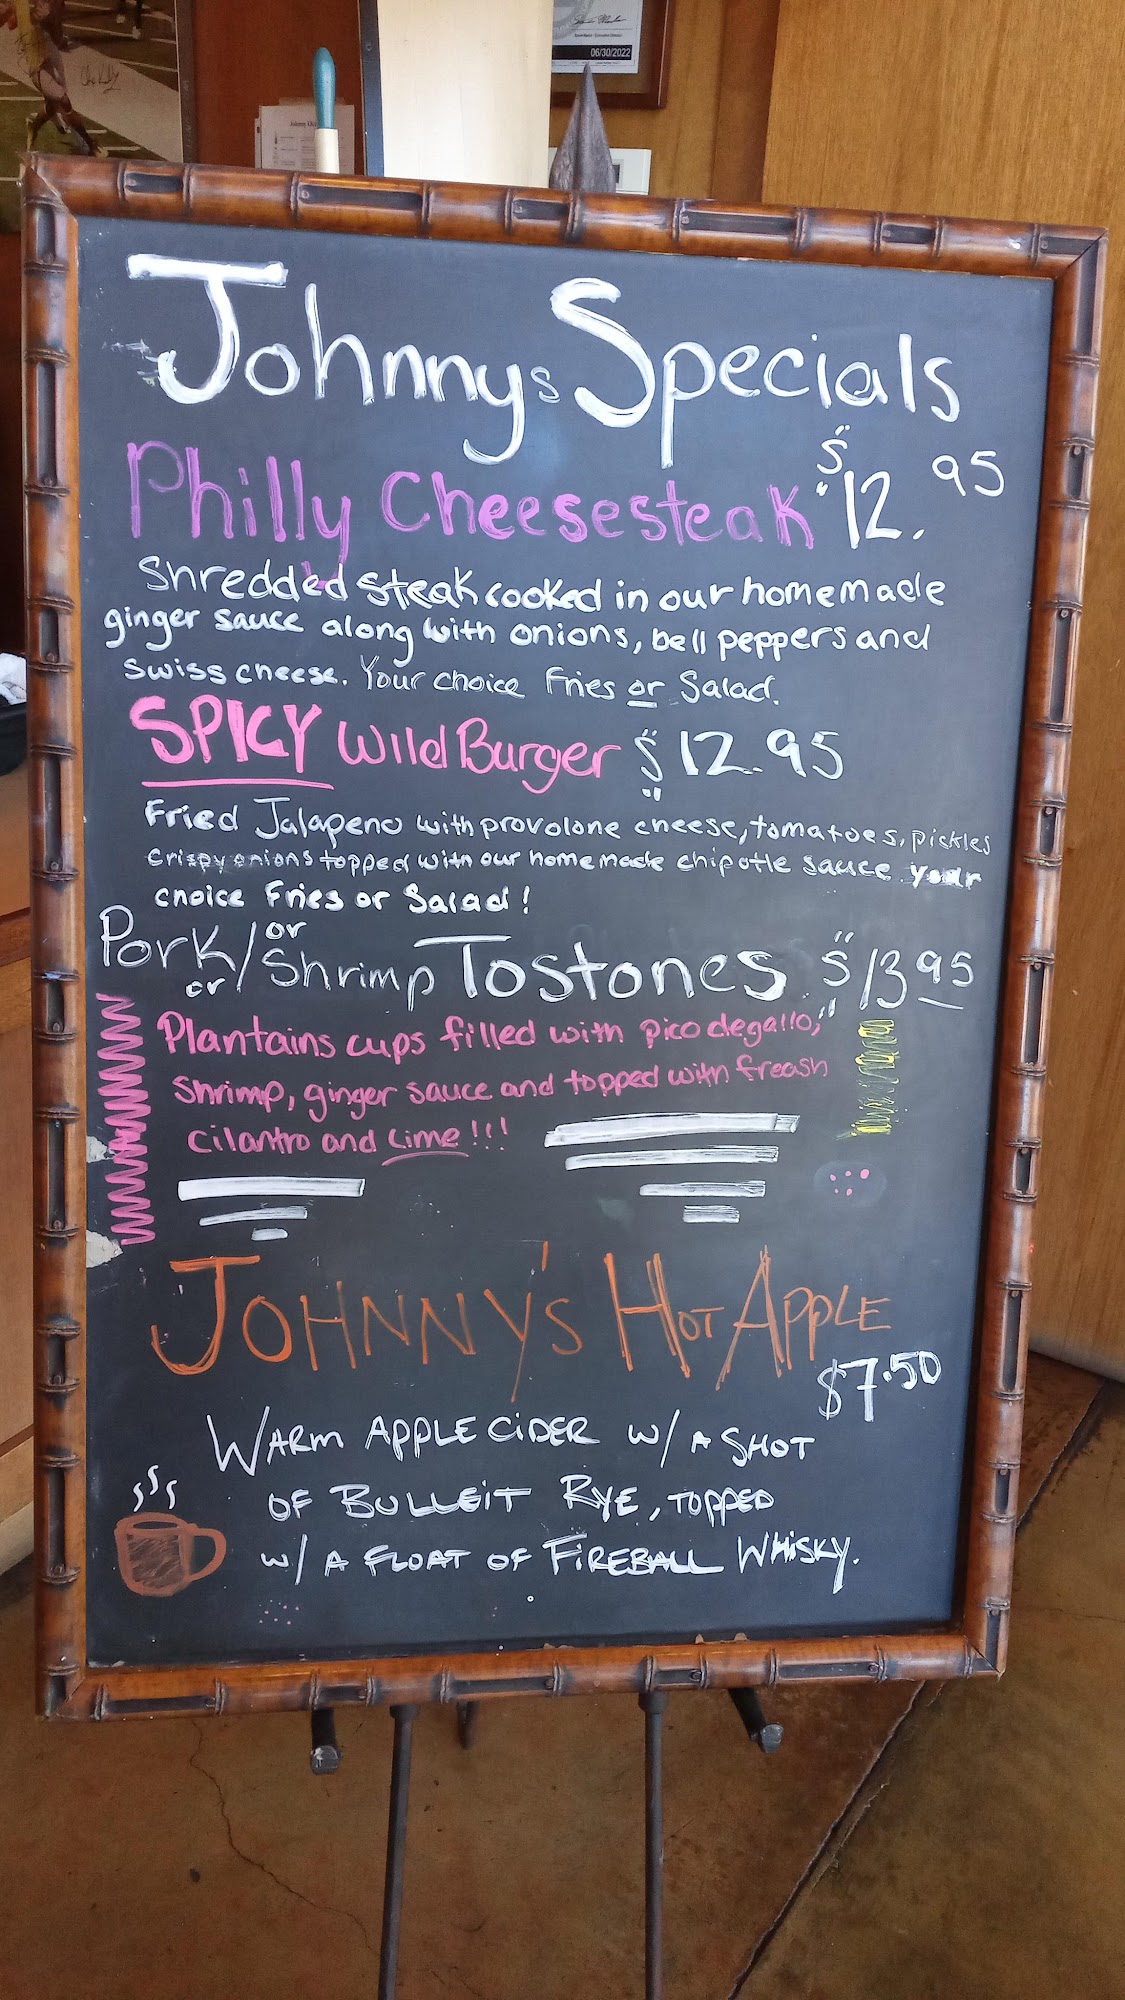 06/30/2022
Johnnys Specials
Philly Cheesesteak $12.95
Shredded steak cooked in our homemade
ginger sauce along with onions, bell peppers and
swiss cheese. Your choice Fries or Salad.
SPICY Wild Burger $12.95
Fried Jalapeno with provolone cheese, tomatoes, pickles
crispy onions topped with our homemade chipotle sauce your
choice Fries or Salad!
Pork/or Shrimp Tostones $13.95
or
Plantains cups filled with pico degallo,
shrimp, ginger sauce and topped with freash
cilantro and Lime!!!
JOHNNY'S HOT APPLE
$7.50
WARM APPLE CIDER W/ A SHOT
OF BULLEIT RYE, TOPPED
W/ A FLOAT OF FIREBALL WHISKY.